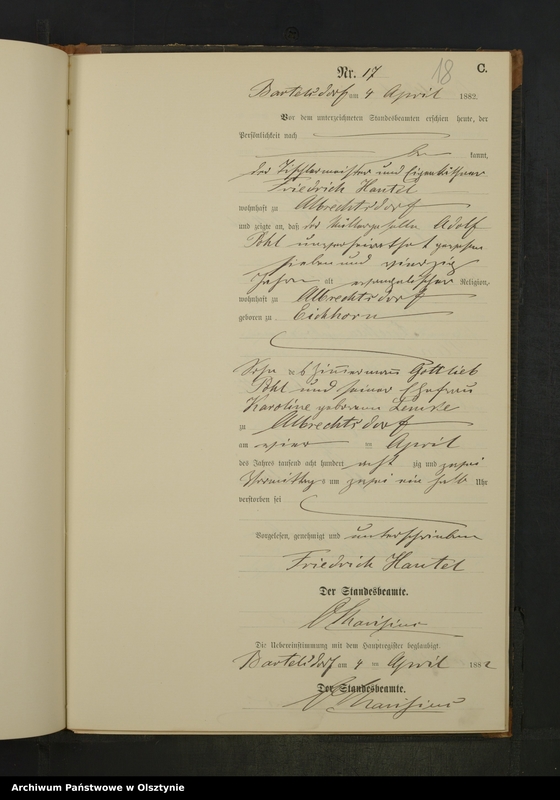 18
C.
Nr. 17
Bartelsdorf am 4 April 1882.
Vor dem unterzeichneten Standesbeamten erschien heute, der
Persönlichkeit nach
be kannt,
der Tischlermeister und Eigenkäthner
Friedrich Hantel
wohnhaft zu Albrechtsdorf
und zeigte an, daß der Müllergeselle Adolf
Pohl unverheirathet gewesen
sieben und vierzig
Jahre alt evangelischer Religion,
wohnhaft zu Albrechtsdorf
geboren zu Eichhorn
Sohn des Zimmermann Gottlieb
Pohl und seiner Ehefrau
Karoline geborene Lemke
zu Albrechtsdorf
am vier ten April
des Jahres tausend acht hundert acht zig und zwei
Vormittags um zwei ein halb Uhr
verstorben sei
Vorgelesen, genehmigt und unterschrieben
Friedrich Hantel
Der Standesbeamte.
Die Uebereinstimmung mit dem Hauptregister beglaubigt.
Bartelsdorf am 4 ten April 1882
Der Standesbeamte.
Archiwum Państwowe w Olsztynie